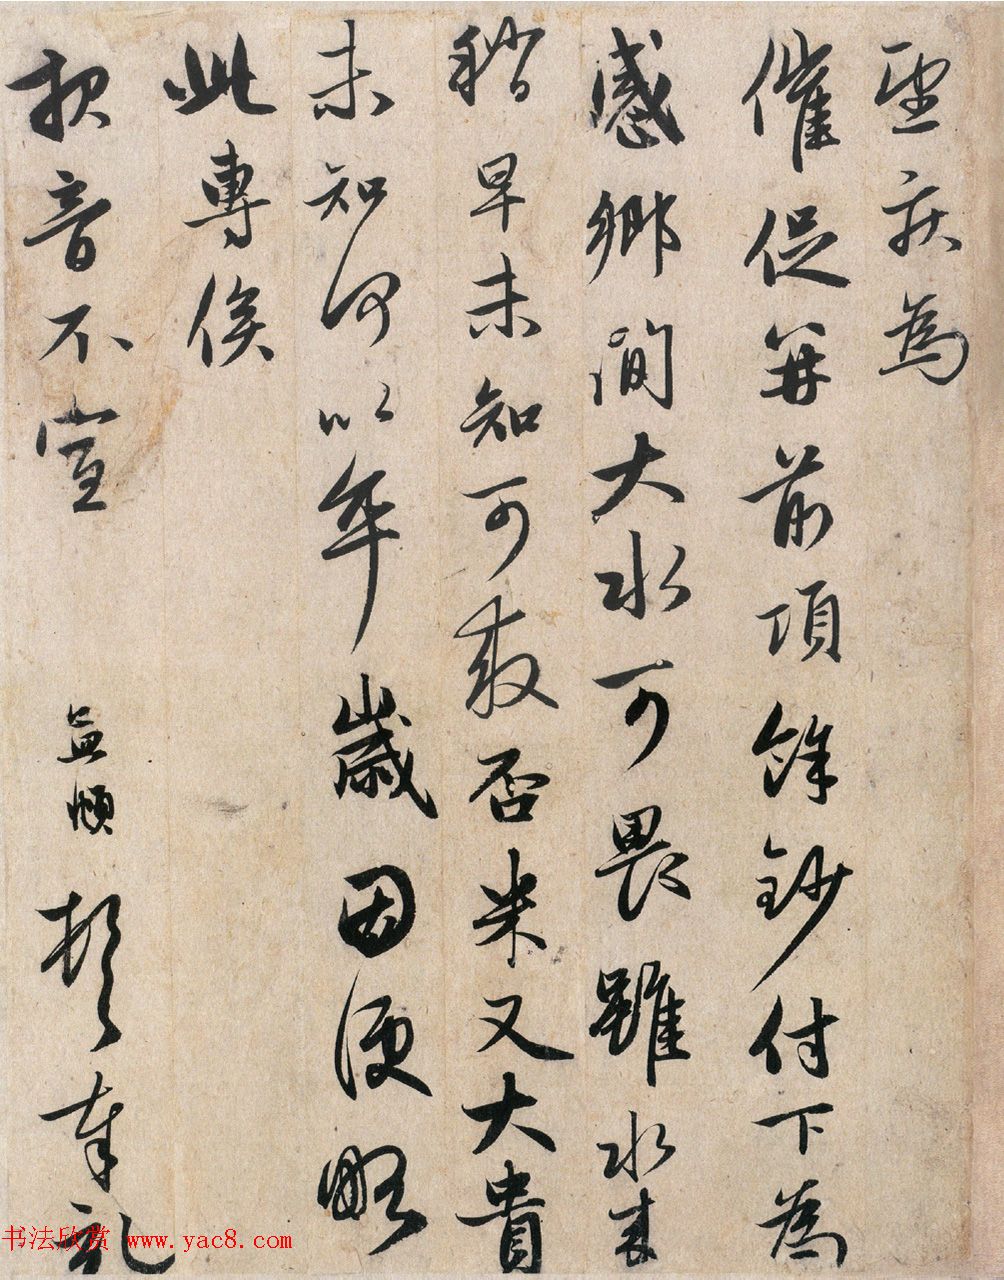 望疾為
催促并前項餘鈔付下為
感鄉間大水可畏雖水來
稍早未知可救否米又大貴
未知何以卒歲因便略
此專俟
報音不宣 孟頫頓首奉記
书法欣赏 www.yac8.com